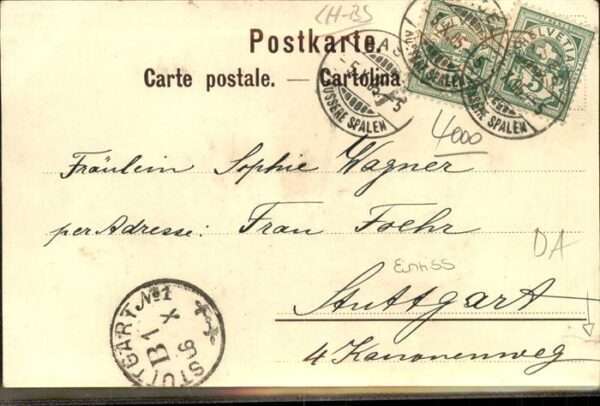 CH-BS
Postkarte.
Carte postale. — Cartolina
HELVETIA
ÄUSSERE SPALEN
4000
Fräulein Sophie Wagner
per Adresse: Frau Foehr
DA
Stuttgart
4 Kanonenweg
STUTTGART. No 1
B1
X